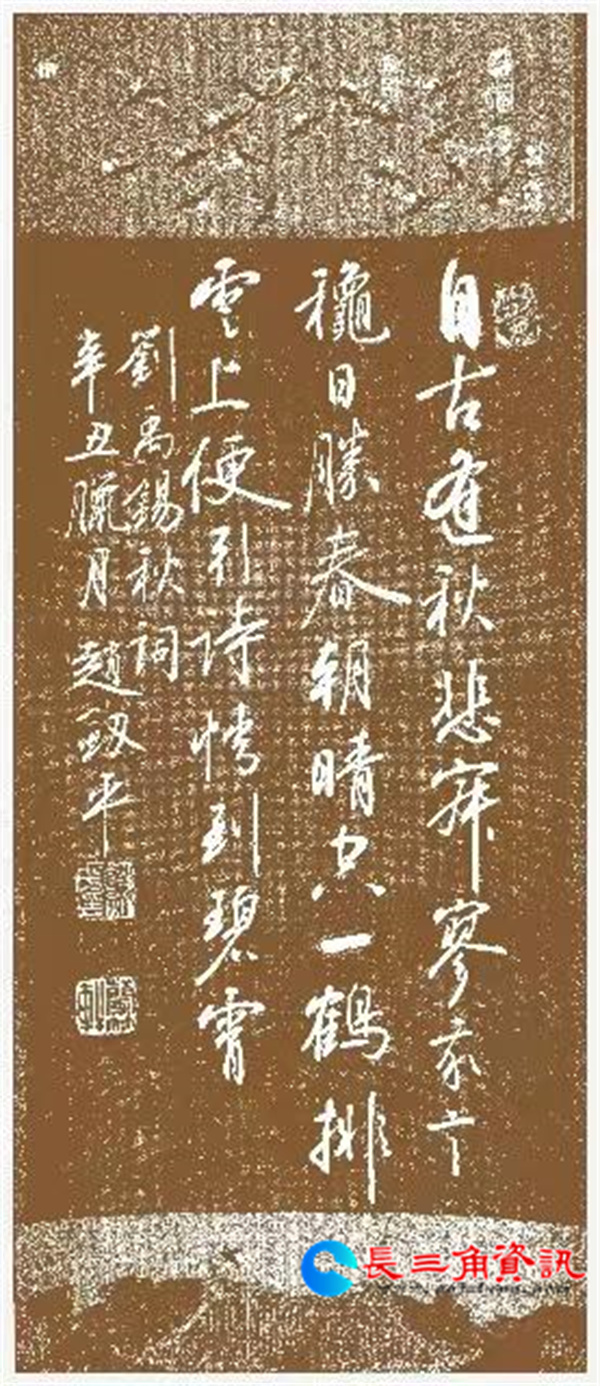 自古逢秋悲寂寥我言
穐日勝春朝晴空一鶴排
雲上便引詩情到碧霄
劉禹錫秋詞
辛丑臘月趙平
長三角資訊